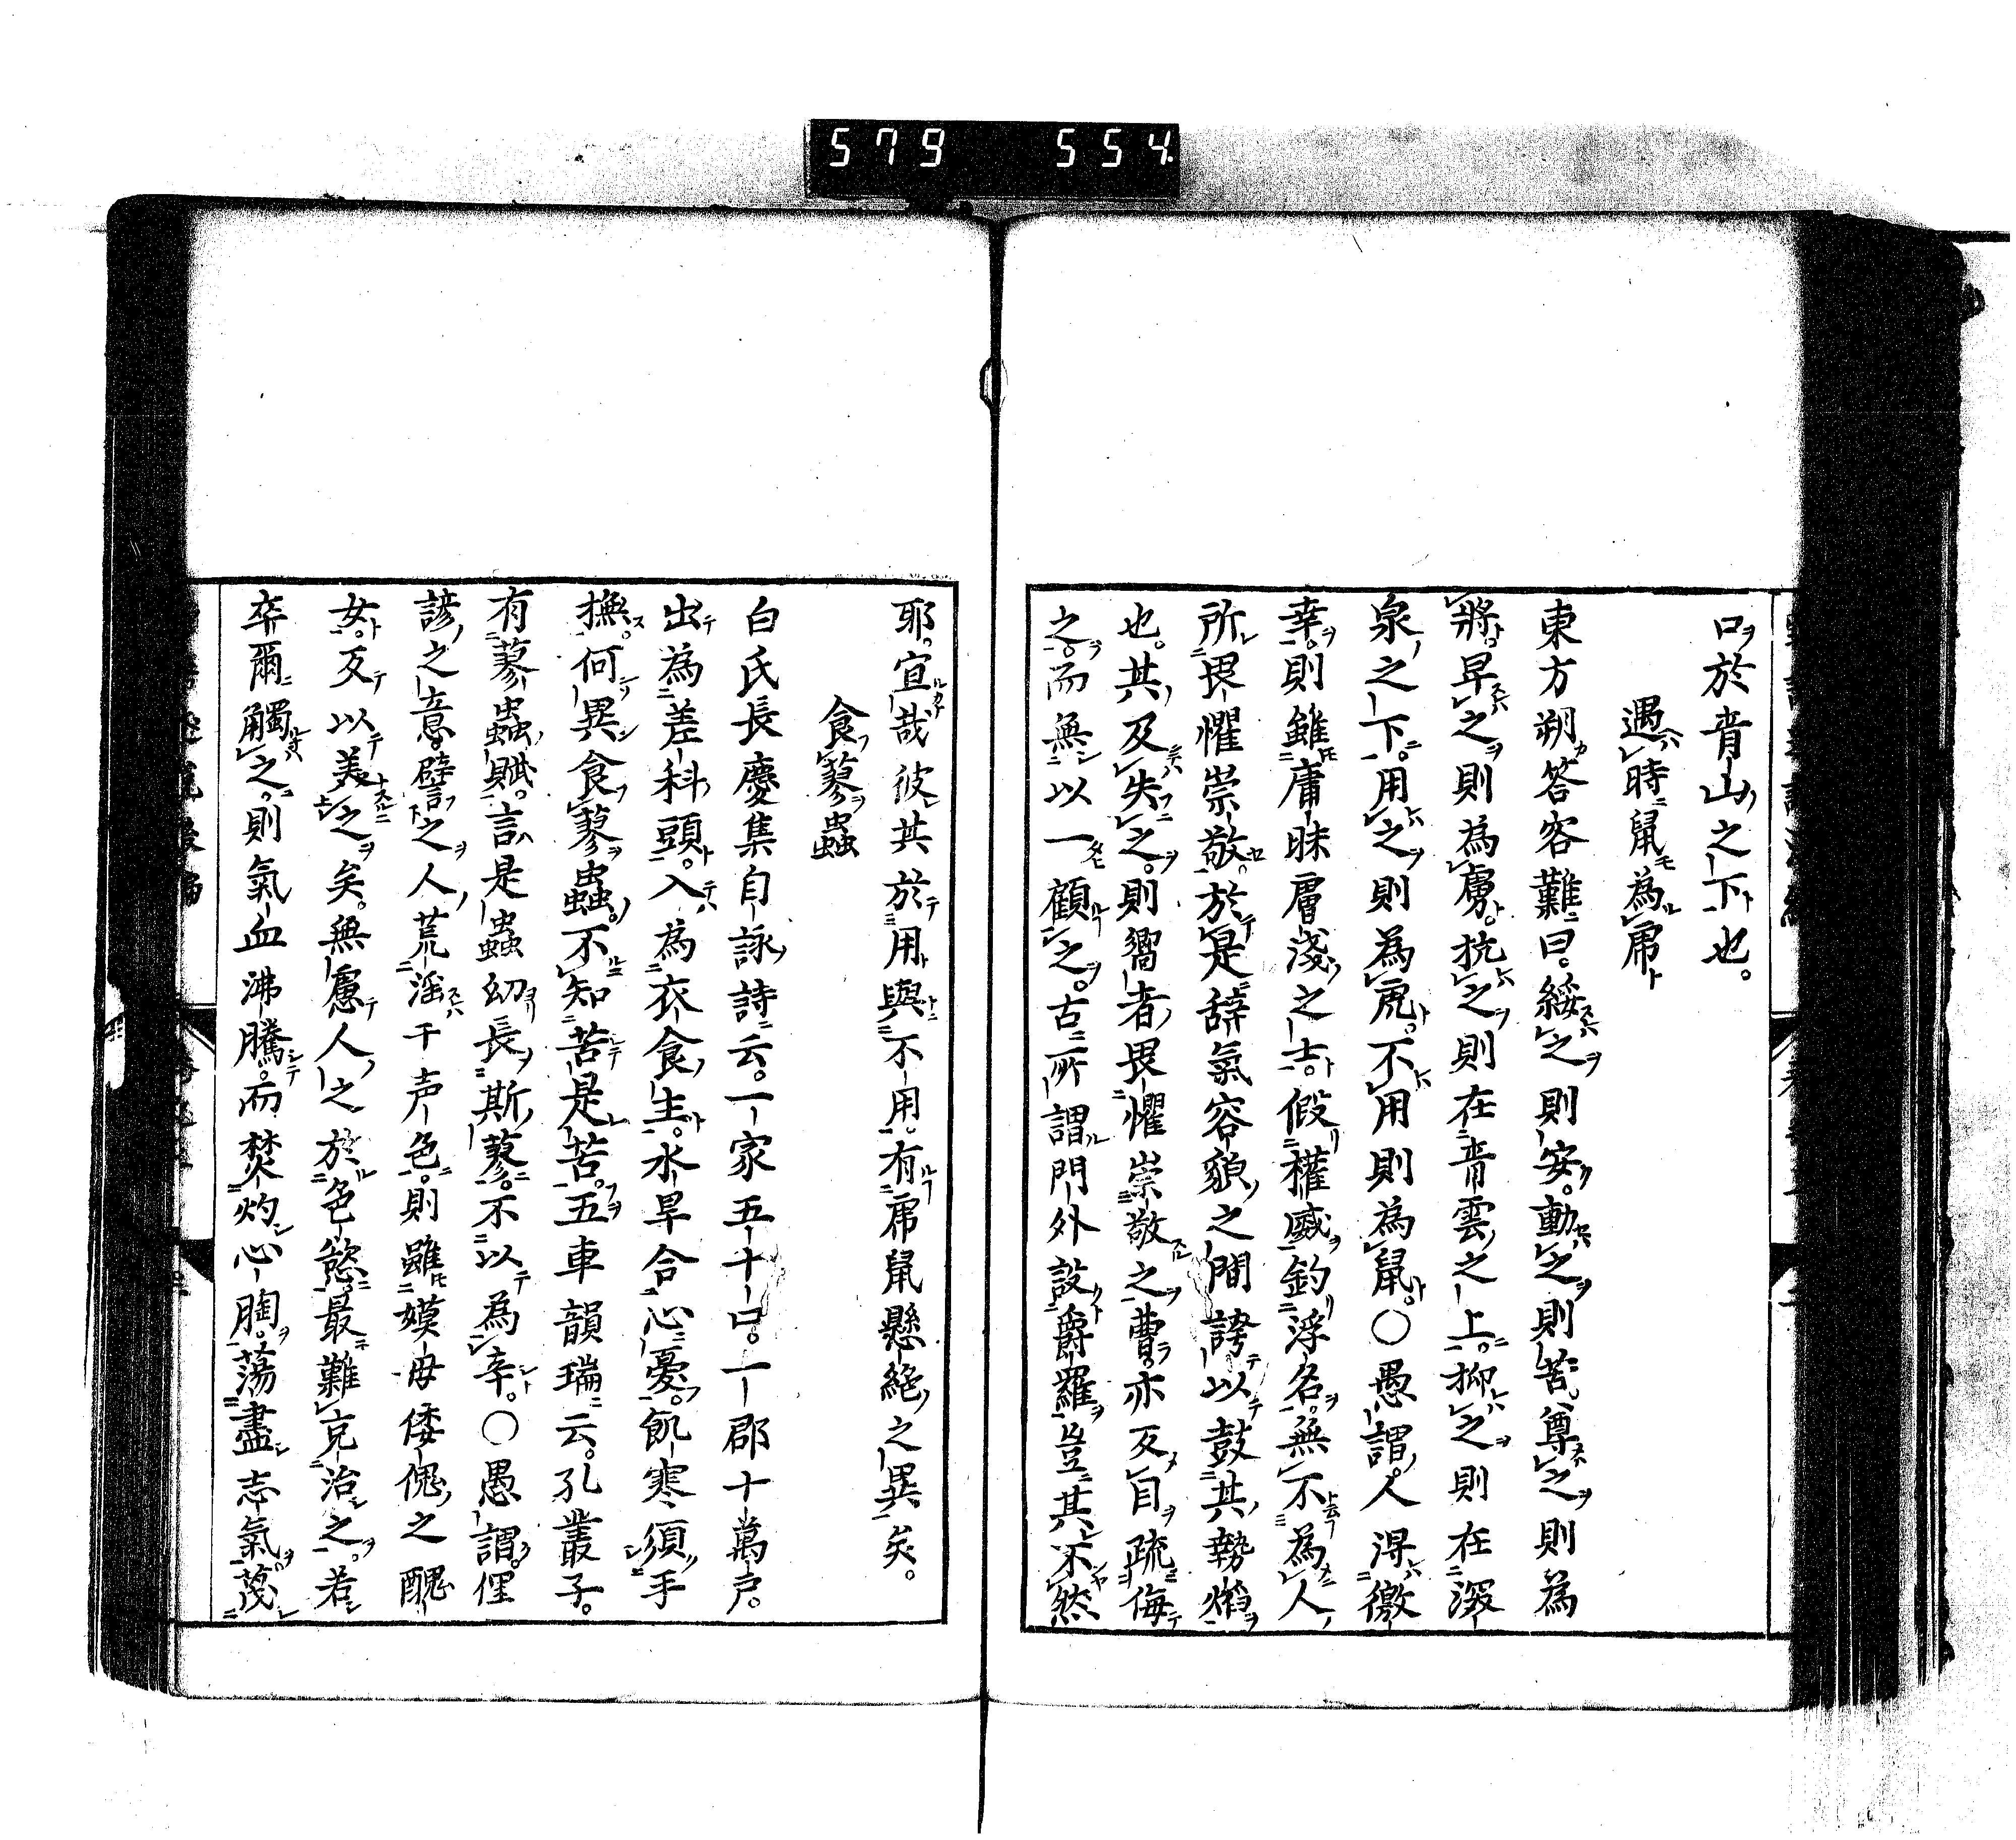 579 554
口於青山之下也。
遇時鼠為虎
東方朔答客難曰。綏之則安。動之則苦。尊之則為
將。卑之則為虜。抗之則在青雲之上。抑之則在深
泉之下。用之則為虎。不用則為鼠。〇愚謂人得徼
幸。則雖庸昧層淺之士。假權威釣浮名。無不為人
所畏懼崇敬。於是辭氣容貌之間誇以鼓其勢焰
也。其及失之。則嚮者畏懼崇敬之曹。亦反自疏侮
之。而無以一顧之。古所謂門外設爵羅豈其不然
耶。宜哉彼其於用與不用。有虎鼠懸絕之異矣。
食蓼蟲
白氏長慶集自詠詩云。一家五十口。一郡十萬戸。
出為差科頭。入為衣食生。水旱合心憂。飢寒須手
撫。何異食蓼蟲。不知苦是苦。五車韻瑞云。孔叢子。
有蓼蟲賦。言是蟲幼長斯蓼。不以為辛。〇愚謂。俚
諺之意。譬之人荒淫于声色。則雖嫫母倭傀之醜
女。反以美之矣。無慮人之於色慾。最難克治之。若
卒爾觸之。則氣血沸騰。而焚灼心胸。蕩盡志氣。蔑